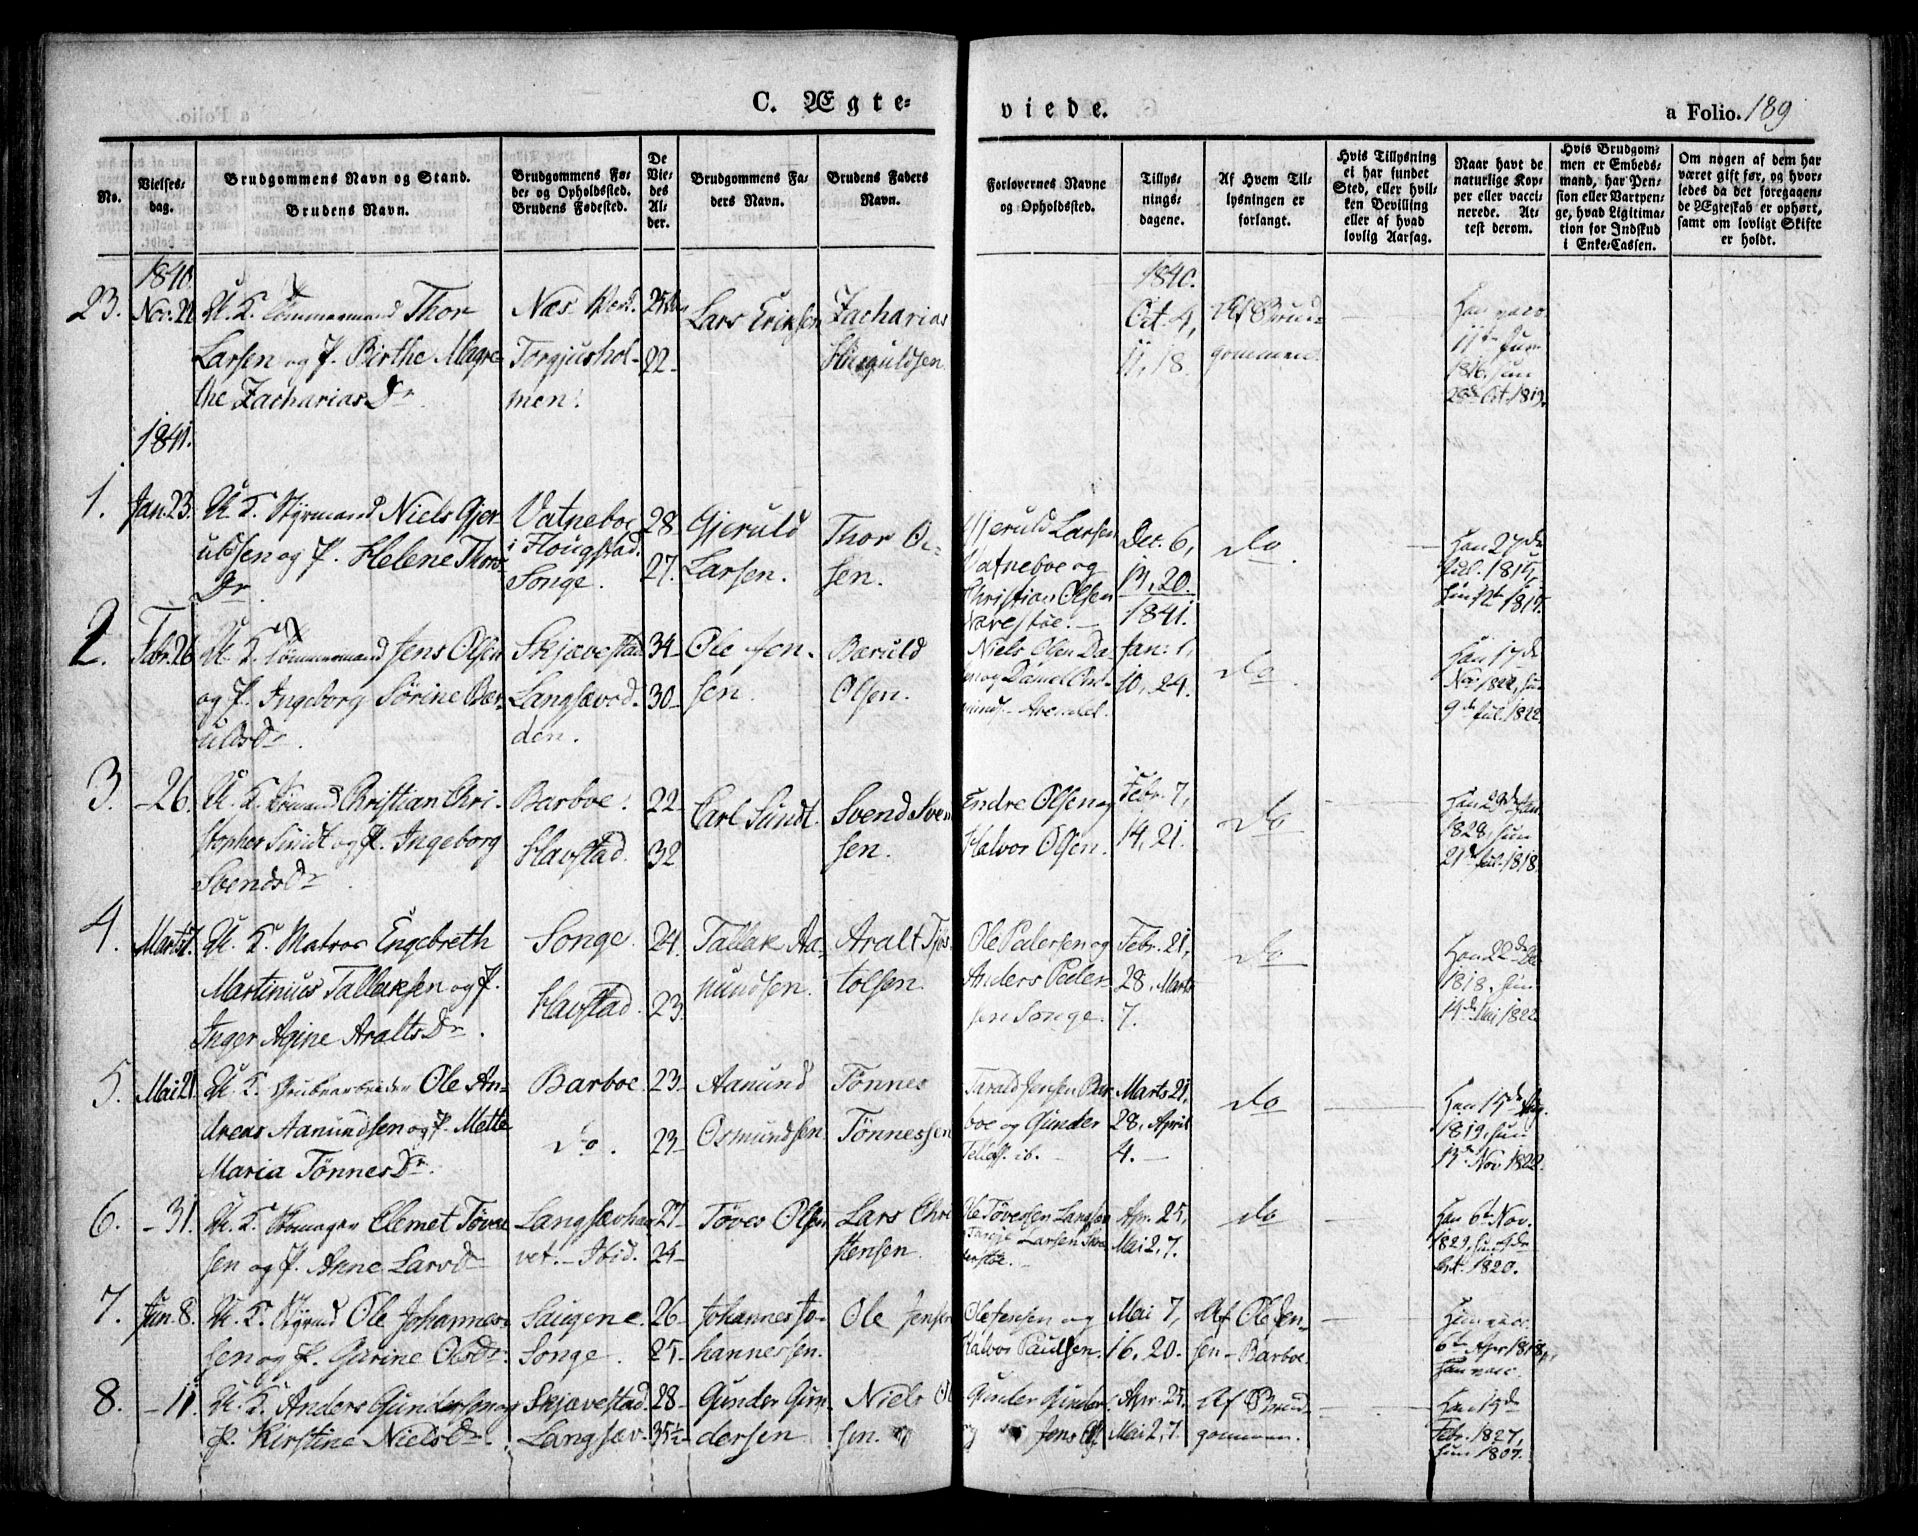 C. Ægte=
viede.
a Folio. 189
No.
Vielses-
dag.
Brudgommens Navn og Stand.
Brudens Navn.
Brudgommens Fø-
de- og Opholdssted.
Brudens Fødested.
De
Vie-
des
Al-
der.
Brudgommens Fa-
ders Navn.
Brudens Faders
Navn.
Forlovernes Navne
og Opholdssted.
Tillys-
nings-
dagene.
Af Hvem Til-
lysningen er
forlangt.
Hvis Tillysning
ei har fundet
Sted, eller hvil-
ken Bevilling
eller af hvad
lovlig Aarsag.
Naar havt de
naturlige Kop-
per eller vacci-
nerede. At-
test derom.
Hvis Brudgom-
men er Embeds-
mand, har Pen-
sion eller Vartpen-
ge, hvad Ligitima-
tion for Indskud
i Enke-Cassen.
Om nogen af dem har
været gift før, og hvor-
ledes da det foregaaen-
de Ægteskab er ophørt,
samt om lovligt Skifte
er holdt.
1840.
23. Nov. 21
U. K. Tømmermand Thor
Larsen og P. Birthe Magre
the Zacharias Dr.
Næs Værk.
Torgjushol-
men.
22
Lars Eriksen
Zacharias
1840.
Oct. 4,
11, 18.
Af Brud-
gommen.
Han vacc.
11te Jun
1816, hun
28de Oct. 1819.
1841.
1. Jan. 23.
U. K. Styrmand Niels Gjer-
uldsen og P. Helene Thors
Dr.
Vatneboe
i Flougstad.
Songe.
28
27.
Gjeruld
Larsen.
Thor Ol-
sen.
Gjeruld Larsen
Vatneboe og
Christian Olsen
Dec. 6,
13, 20.
1841.
Do
Han 27de
Jul. 1815,
hun 12te 1815.
2. Febr. 26
U. K. Tømmermand Jens Olsen
og P. Ingeborg Sørine Bær-
ulds Dr.
Skjævestad
Langsæverd-
den.
34
30
Ole Jen-
sen.
Bæruld
Olsen.
Niels Olsen
og Daniel
Arendal.
Jan: 1,
10, 24.
Do
Han 17de
Nov. 1822, hun
9de Jul. 1822.
3. - 26.
U. K. Christian Chri-
stopher Sundt og P. Ingeborg
Svends Dr.
Barboe.
Havstad.
22
32
Carl Sundt.
Svend Sven
sen.
Endre Olsen og
Halvor Olsen.
Febr. 7,
14, 21.
Do
Han 29de Jan
1828, hun
21de Jul. 1818.
4. Marts
U. K. Matros Engebreth
Martinus Tallaksen og P.
Inger Agine Aralts Dr.
Songe.
Havstad.
24.
23.
Tallak Aa-
nundsen.
Aralt Tjøs-
tolsen.
Ole Pedersen og
Anders Peder-
sen Songe.
Febr. 21,
28, Marts
7.
Do
Han 22de Dec
1818, hun
14de Mai 1822
5. Mai 21.
U. K. Grubearbeider Ole An-
dreas Aanundsen og P. Mette
Maria Tønnes Dr.
Barboe
Do.
23
23
Aanund
Osmundsen
Tønnes
Tønnessen
Tarald Jensen Bar-
boe og Gunder
ib.
Marts 21,
28, April
4.
Do
Han 15de Aug.
1819, hun
13de Nov. 1822.
6. - 31.
U. K. Clemet Tøves
sen og P. Anne Lars Dr
Langsævha
vet. - Ibid.
27
24
Tøves Olsen
Lars Chri
stensen.
Ole Tøvessen Langsæv
Larsen
Apr. 25,
Mai 2, 7.
Do
Han 6te Nov.
1829, hun 4de
Oct. 1820.
7. Jun. 8.
U. K. Styrmd Ole Johannes-
sen og P. Gurine Ols Dr.
Saugene.
Songe.
26
25
Johannes Jo-
hannessen.
Ole Jensen
Ole Jensen og
Halvor Paulsen.
Mai 7,
16, 20.
Af Ole Jen-
sen - Barboe
Hun vacc.
6te Apr. 1818,
Han vacc.
8. - 11.
U. K. Anders Gundersen og
P. Kirstine Niels Dr.
Skjævestad.
Langsæv.
28
35½
Gunder Gun-
dersen
Niels Ol
sen.
Gunder Gunder-
Jens
Apr. 25,
Mai 2, 7.
Af Brud-
gommen.
Han 15de
Febr. 1827,
hun 1807.